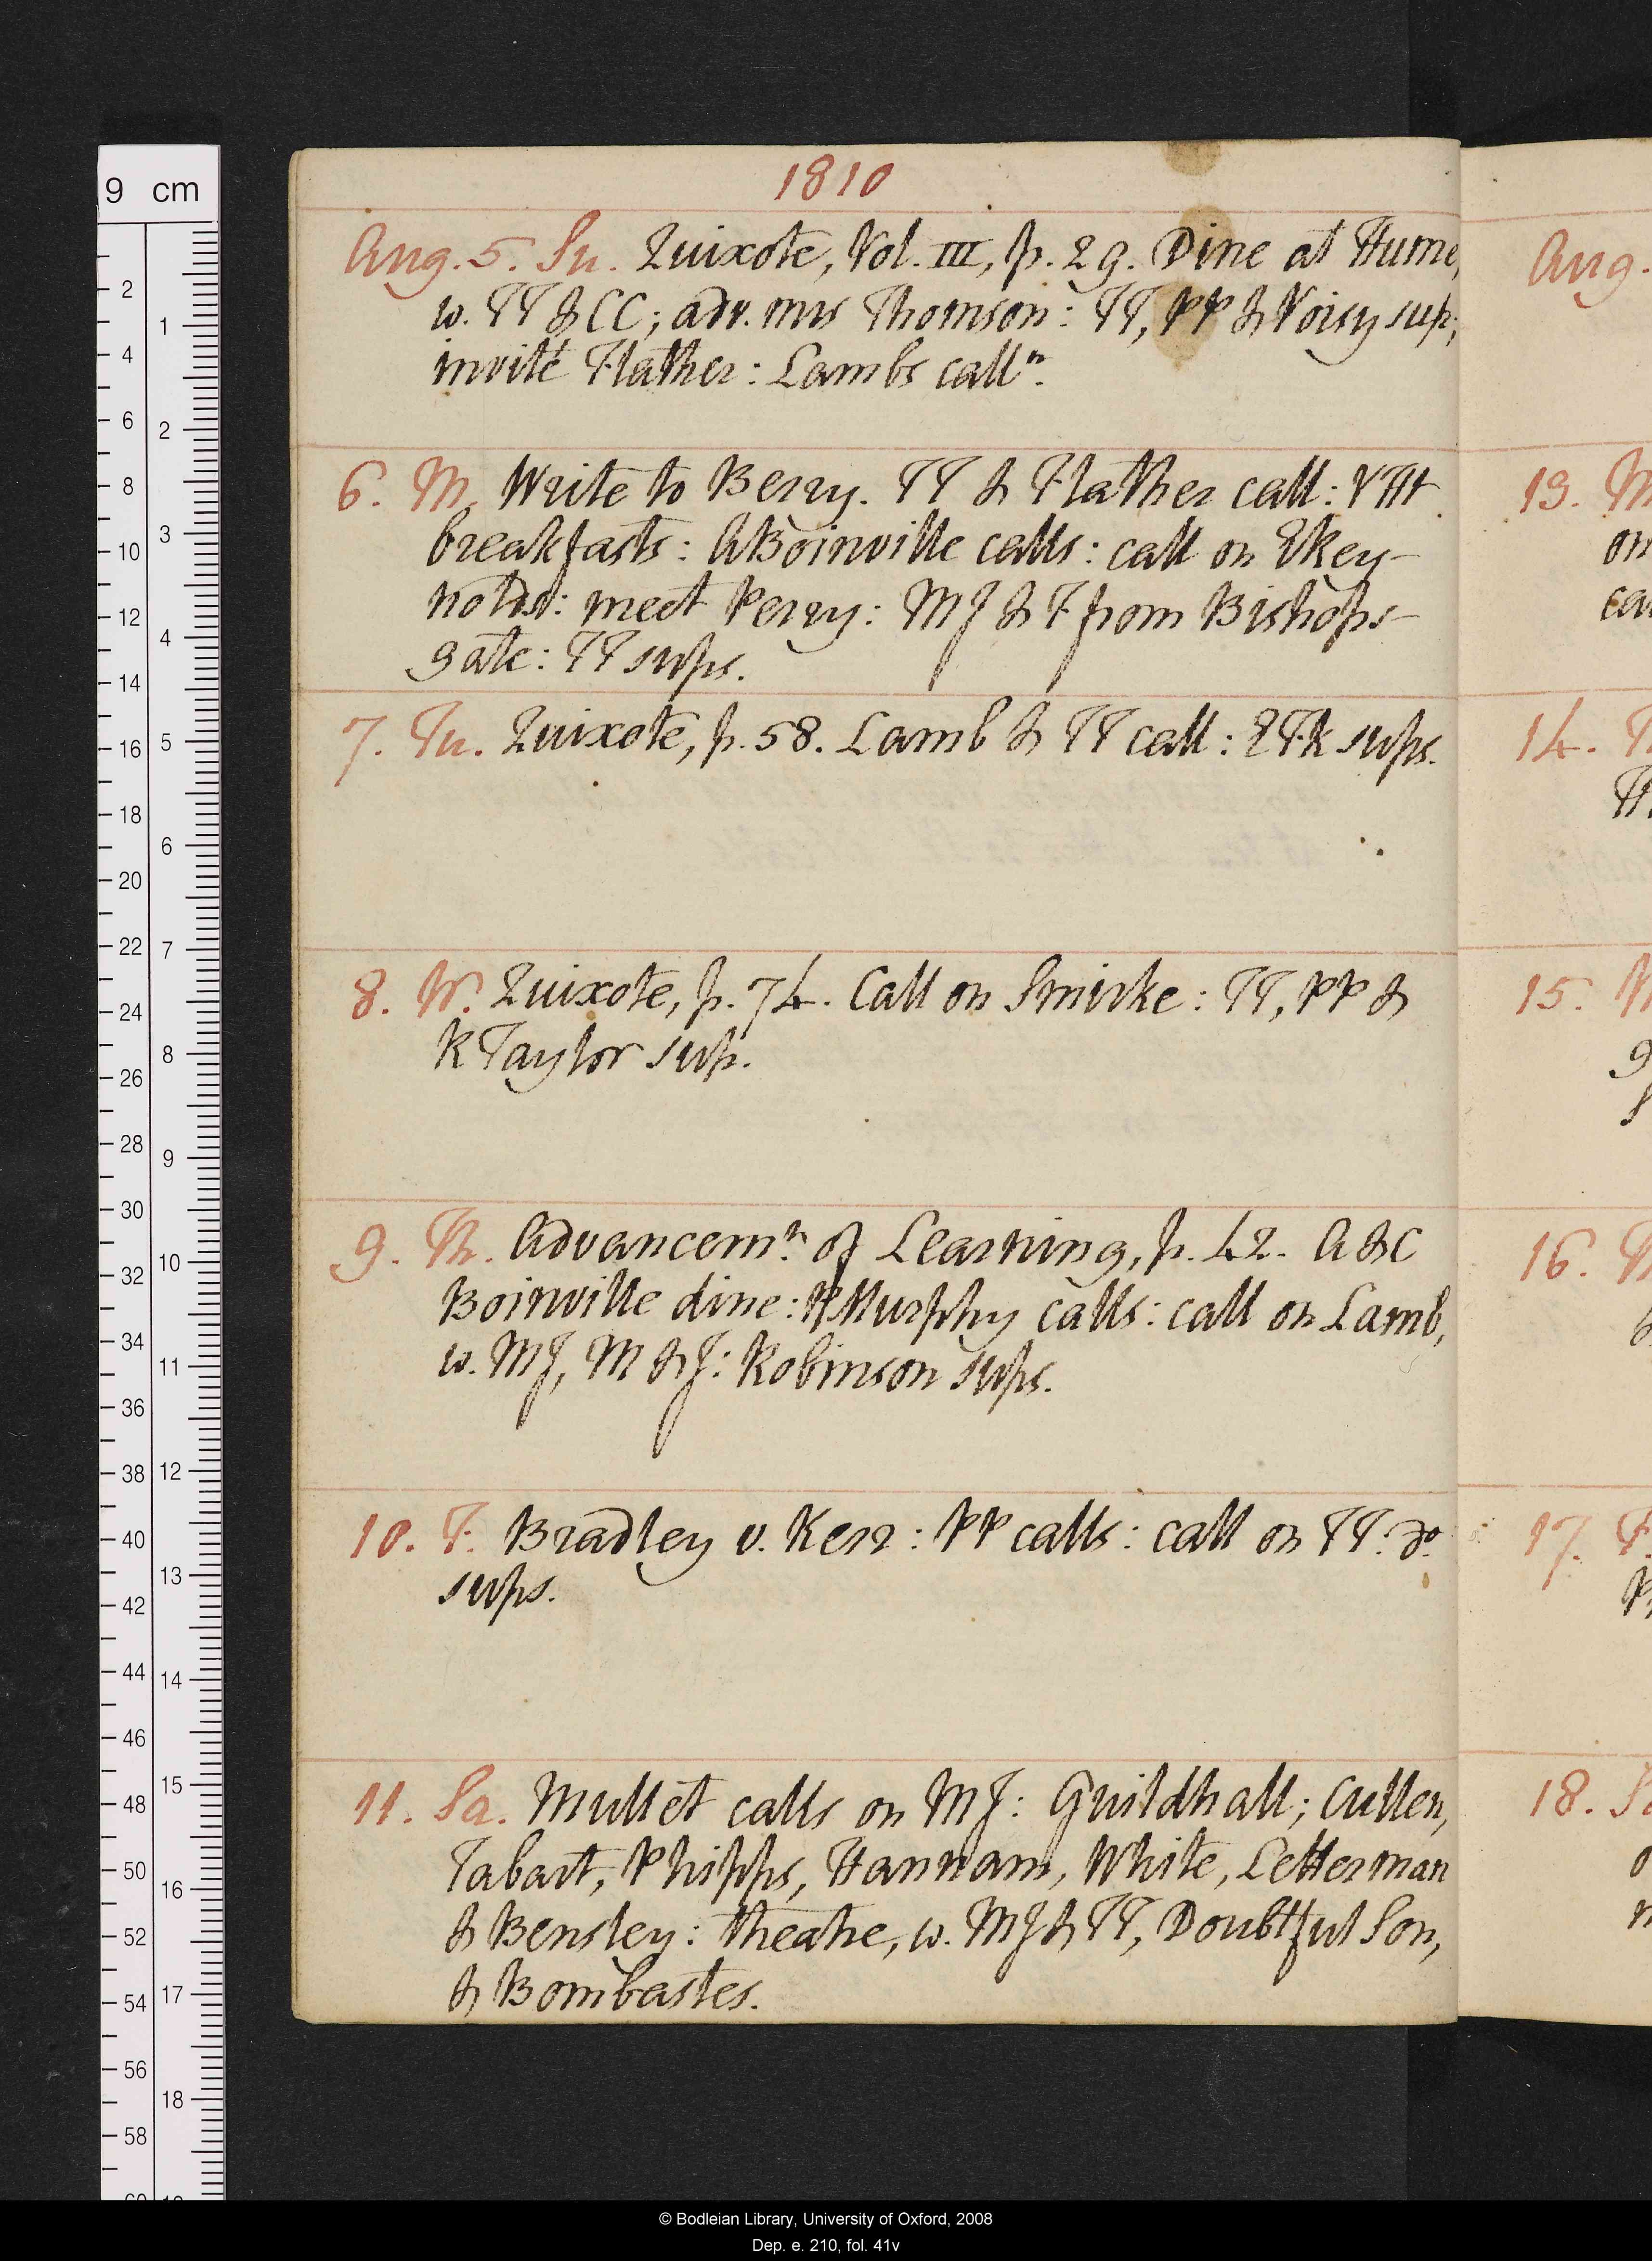 1810
Aug. 5. Su. Quixote, Vol. III, p. 29. Dine at Hume,
w. TT & CC; adv. mrs Thomson: TT, PP & Voisy sup;
invité Flather: Lambs calln.
6. M. Write to Berry. TT & Flather call: VHt
breakfasts: ABoinville calls: call on ERey-
nolds: meet Perry: MJ & F from Bishops-
gate: TT sups.
7. Tu. Quixote, p. 58. Lamb & TT call: ETR sups.
8. W. Quixote, p. 74. Call on Smirke: TT, PP &
RTaylor sup.
9. Th. Advancemt. of Learning, p. 42. A & C
Boinville dine: Murphy calls: call on Lamb,
w. MJ, M & J: Robinson sups.
10. F. Bradley v. Kerr: PP calls: call on TT: do.
sups.
11. Sa. Mullet calls on MJ: Guildhall; Cullen,
Tabart, Phipps, Hannam, White, Letterman
& Bensley: theatre, w. MJ & TT, Doubtful Son,
& Bombastes.
Aug.
13. M
on
14. T
15. W
16. T
17. F.
18. Sa
9 cm
2 4 6 8 10 12 14 16 18 20 22 24 26 28 30 32 34 36 38 40 42 44 46 48 50 52 54 56 58 60
1 2 3 4 5 6 7 8 9 10 11 12 13 14 15 16 17 18
© Bodleian Library, University of Oxford, 2008
Dep. e. 210, fol. 41v